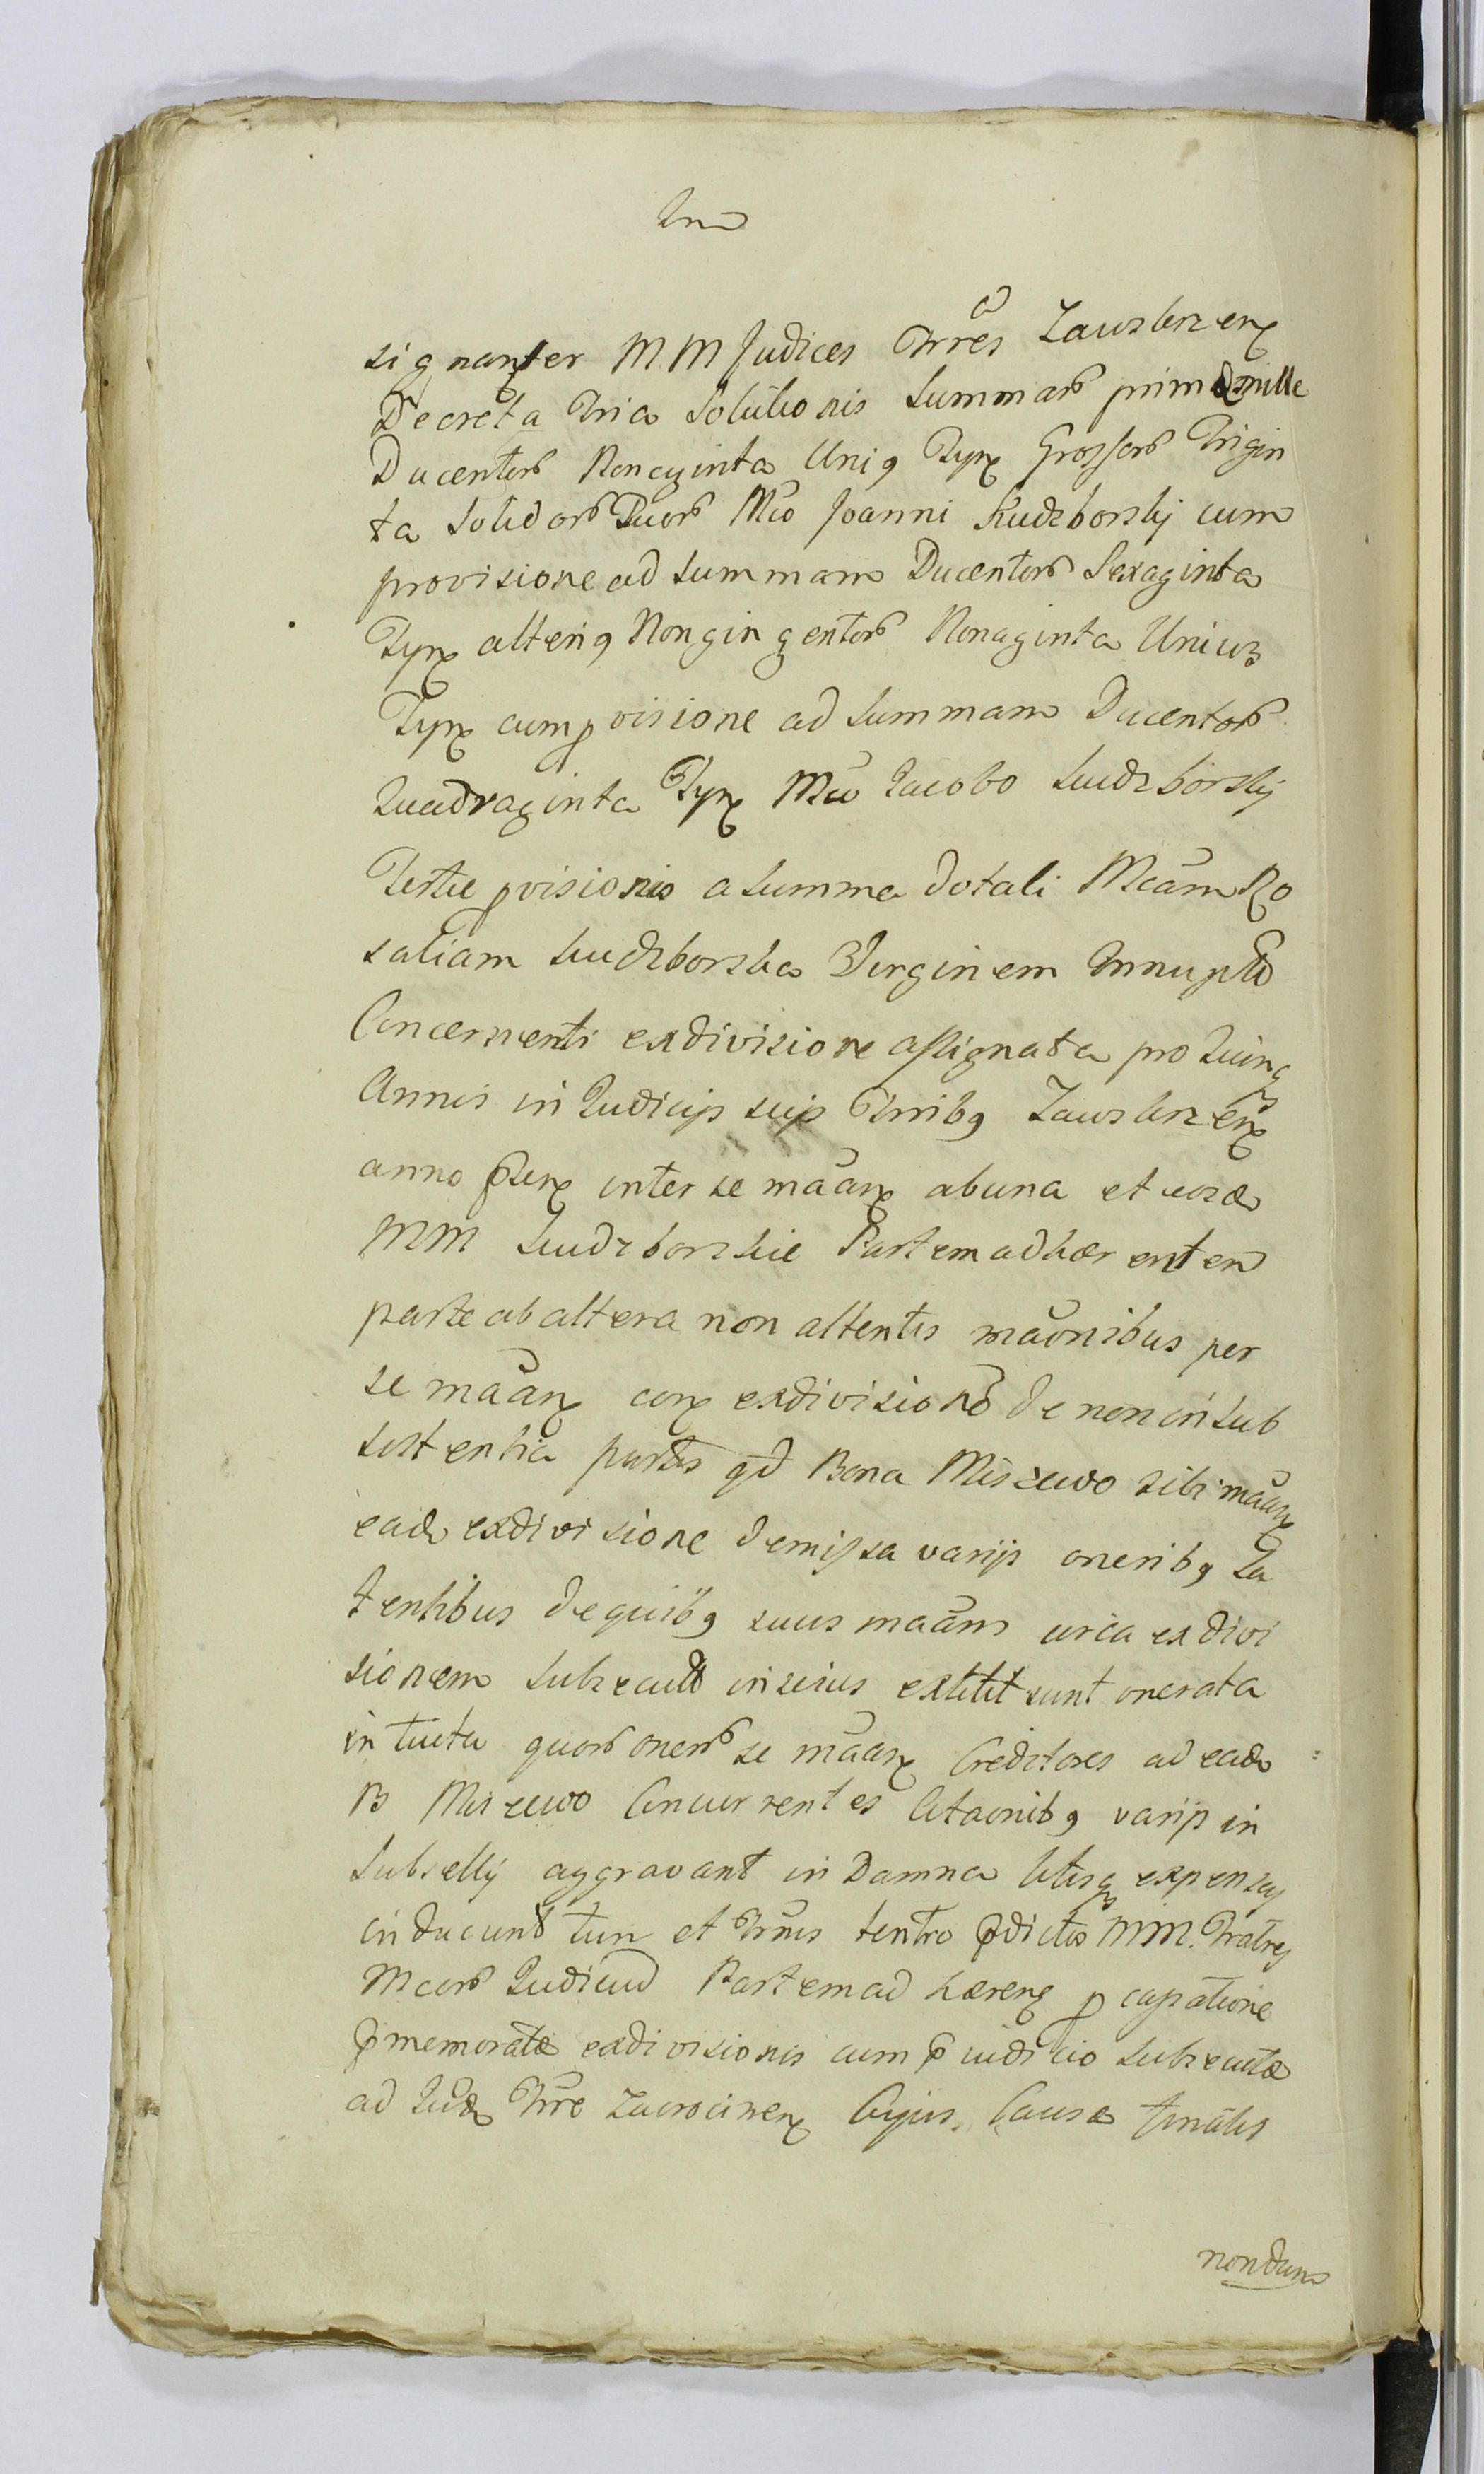 signanter MM Judices Trres Zawskrzen
Decreta Tria Solutionis Summar prima mille
Ducentor Nonaginta Uniq Tyn Grossor Trigin
ta Solidor Duor Mco Joanni Sudzborskj cum
provisione ad Summam Ducentor Sexaginta
Tyn alteriq Nongingentor Nonaginta Unius
Tyn cum pvisione ad Summam Ducentor
Quadraginta Tyn Mco Jacobo Sudzborskj
Tertie pvisionis a Summa dotali Mcam Ro
saliam Sudzborska Virginem Innupta
Concernenti exdivisione assignata pro Quinq
Annis in Judicijs suis Trribq Zawskrzen
anno inter se maan ab una et
MM Sudzborskie Partem adhærenten
parte ab altera non attentis maonibus per
se maan exdivisione de non in sub
sistentia partis qd Bona Miszewo sibi maan
ead exdivisione demissa varijs oneribq La
tentibus de quibq suus maam circa exdivi
sionem subsecuta inscius extitit sunt onerata
intuitu quor oner se maan Creditores ad ead
B Miszewo Concurrentes Citaonibq varijs in
Subsellij aggravant in Damna litisq expensas
inducunt tum et tentro pdictos MM. Fratres
Mcor Judicu Partem ad hæren p cassatione
pmemoratæ exdivisionis cum p iudicio subsecutæ
ad Jud Trre Zacrocinen Cujus Causæ finalis
nondum